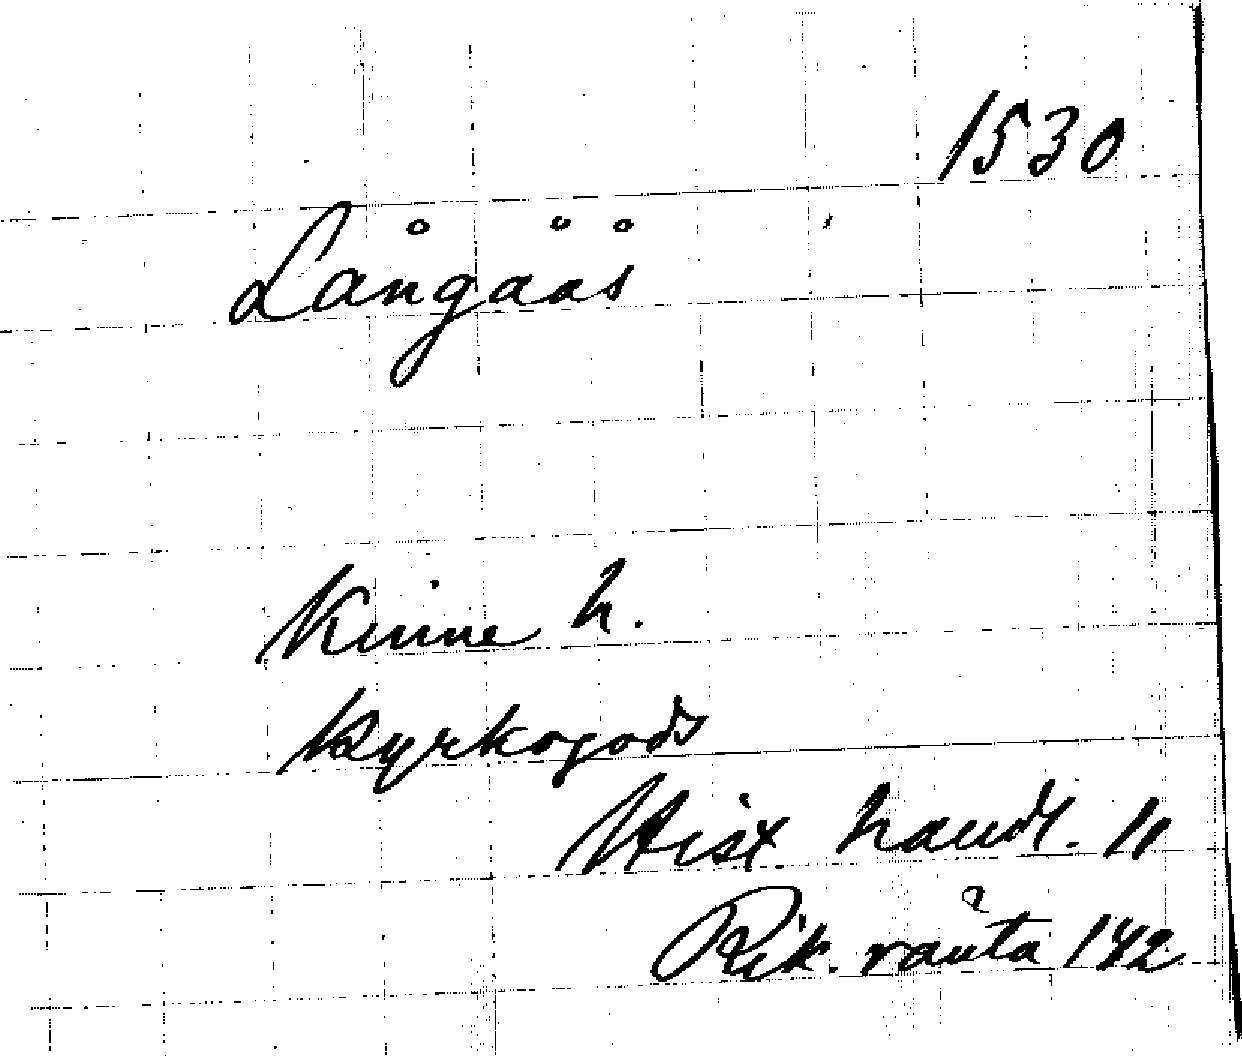 1530
Långåås
Kinne h.
Kyrkogods
Hist handl. 11
Rik. ränta 142